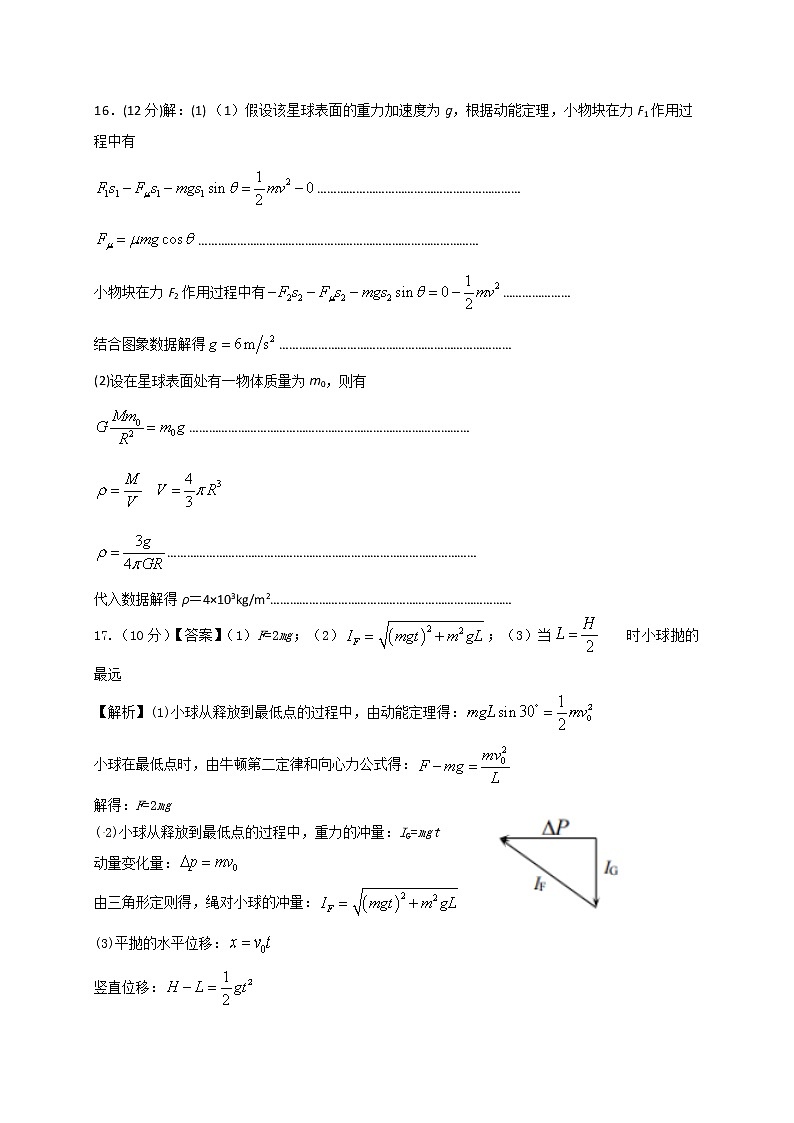 16．(12 分)解：(1) （1）假设该星球表面的重力加速度为 g，根据动能定理，小物块在力 F₁ 作用过
程中有
F₁s₁ − F_μs₁ − mgs₁ sin θ = 1/2 mv² − 0 ……………………………………………………
F_μ = μmg cos θ …………………………………………………………………………
小物块在力 F₂ 作用过程中有 −F₂s₂ − F_μs₂ − mgs₂ sin θ = 0 − 1/2 mv² …………………
结合图象数据解得 g = 6 m/s² ……………………………………………………………
(2)设在星球表面处有一物体质量为 m₀，则有
G Mm₀/R² = m₀g …………………………………………………………………………
ρ = M/V V = 4/3 πR³
ρ = 3g/4πGR …………………………………………………………………………………
代入数据解得 ρ＝4×10³kg/m²………………………………………………………………
17.（10 分）【答案】（1）F=2mg；（2） I_F = √((mgt)² + m²gL) ；（3）当 L = H/2 时小球抛的
最远
【解析】(1)小球从释放到最低点的过程中，由动能定理得：mgL sin 30° = 1/2 mv₀²
小球在最低点时，由牛顿第二定律和向心力公式得：F − mg = mv₀²/L
解得：F=2mg
(2)小球从释放到最低点的过程中，重力的冲量：I_G=mgt
动量变化量：Δp = mv₀
由三角形定则得，绳对小球的冲量：I_F = √((mgt)² + m²gL)
ΔP
I_G
I_F
(3)平抛的水平位移：x = v₀t
竖直位移：H − L = 1/2 gt²